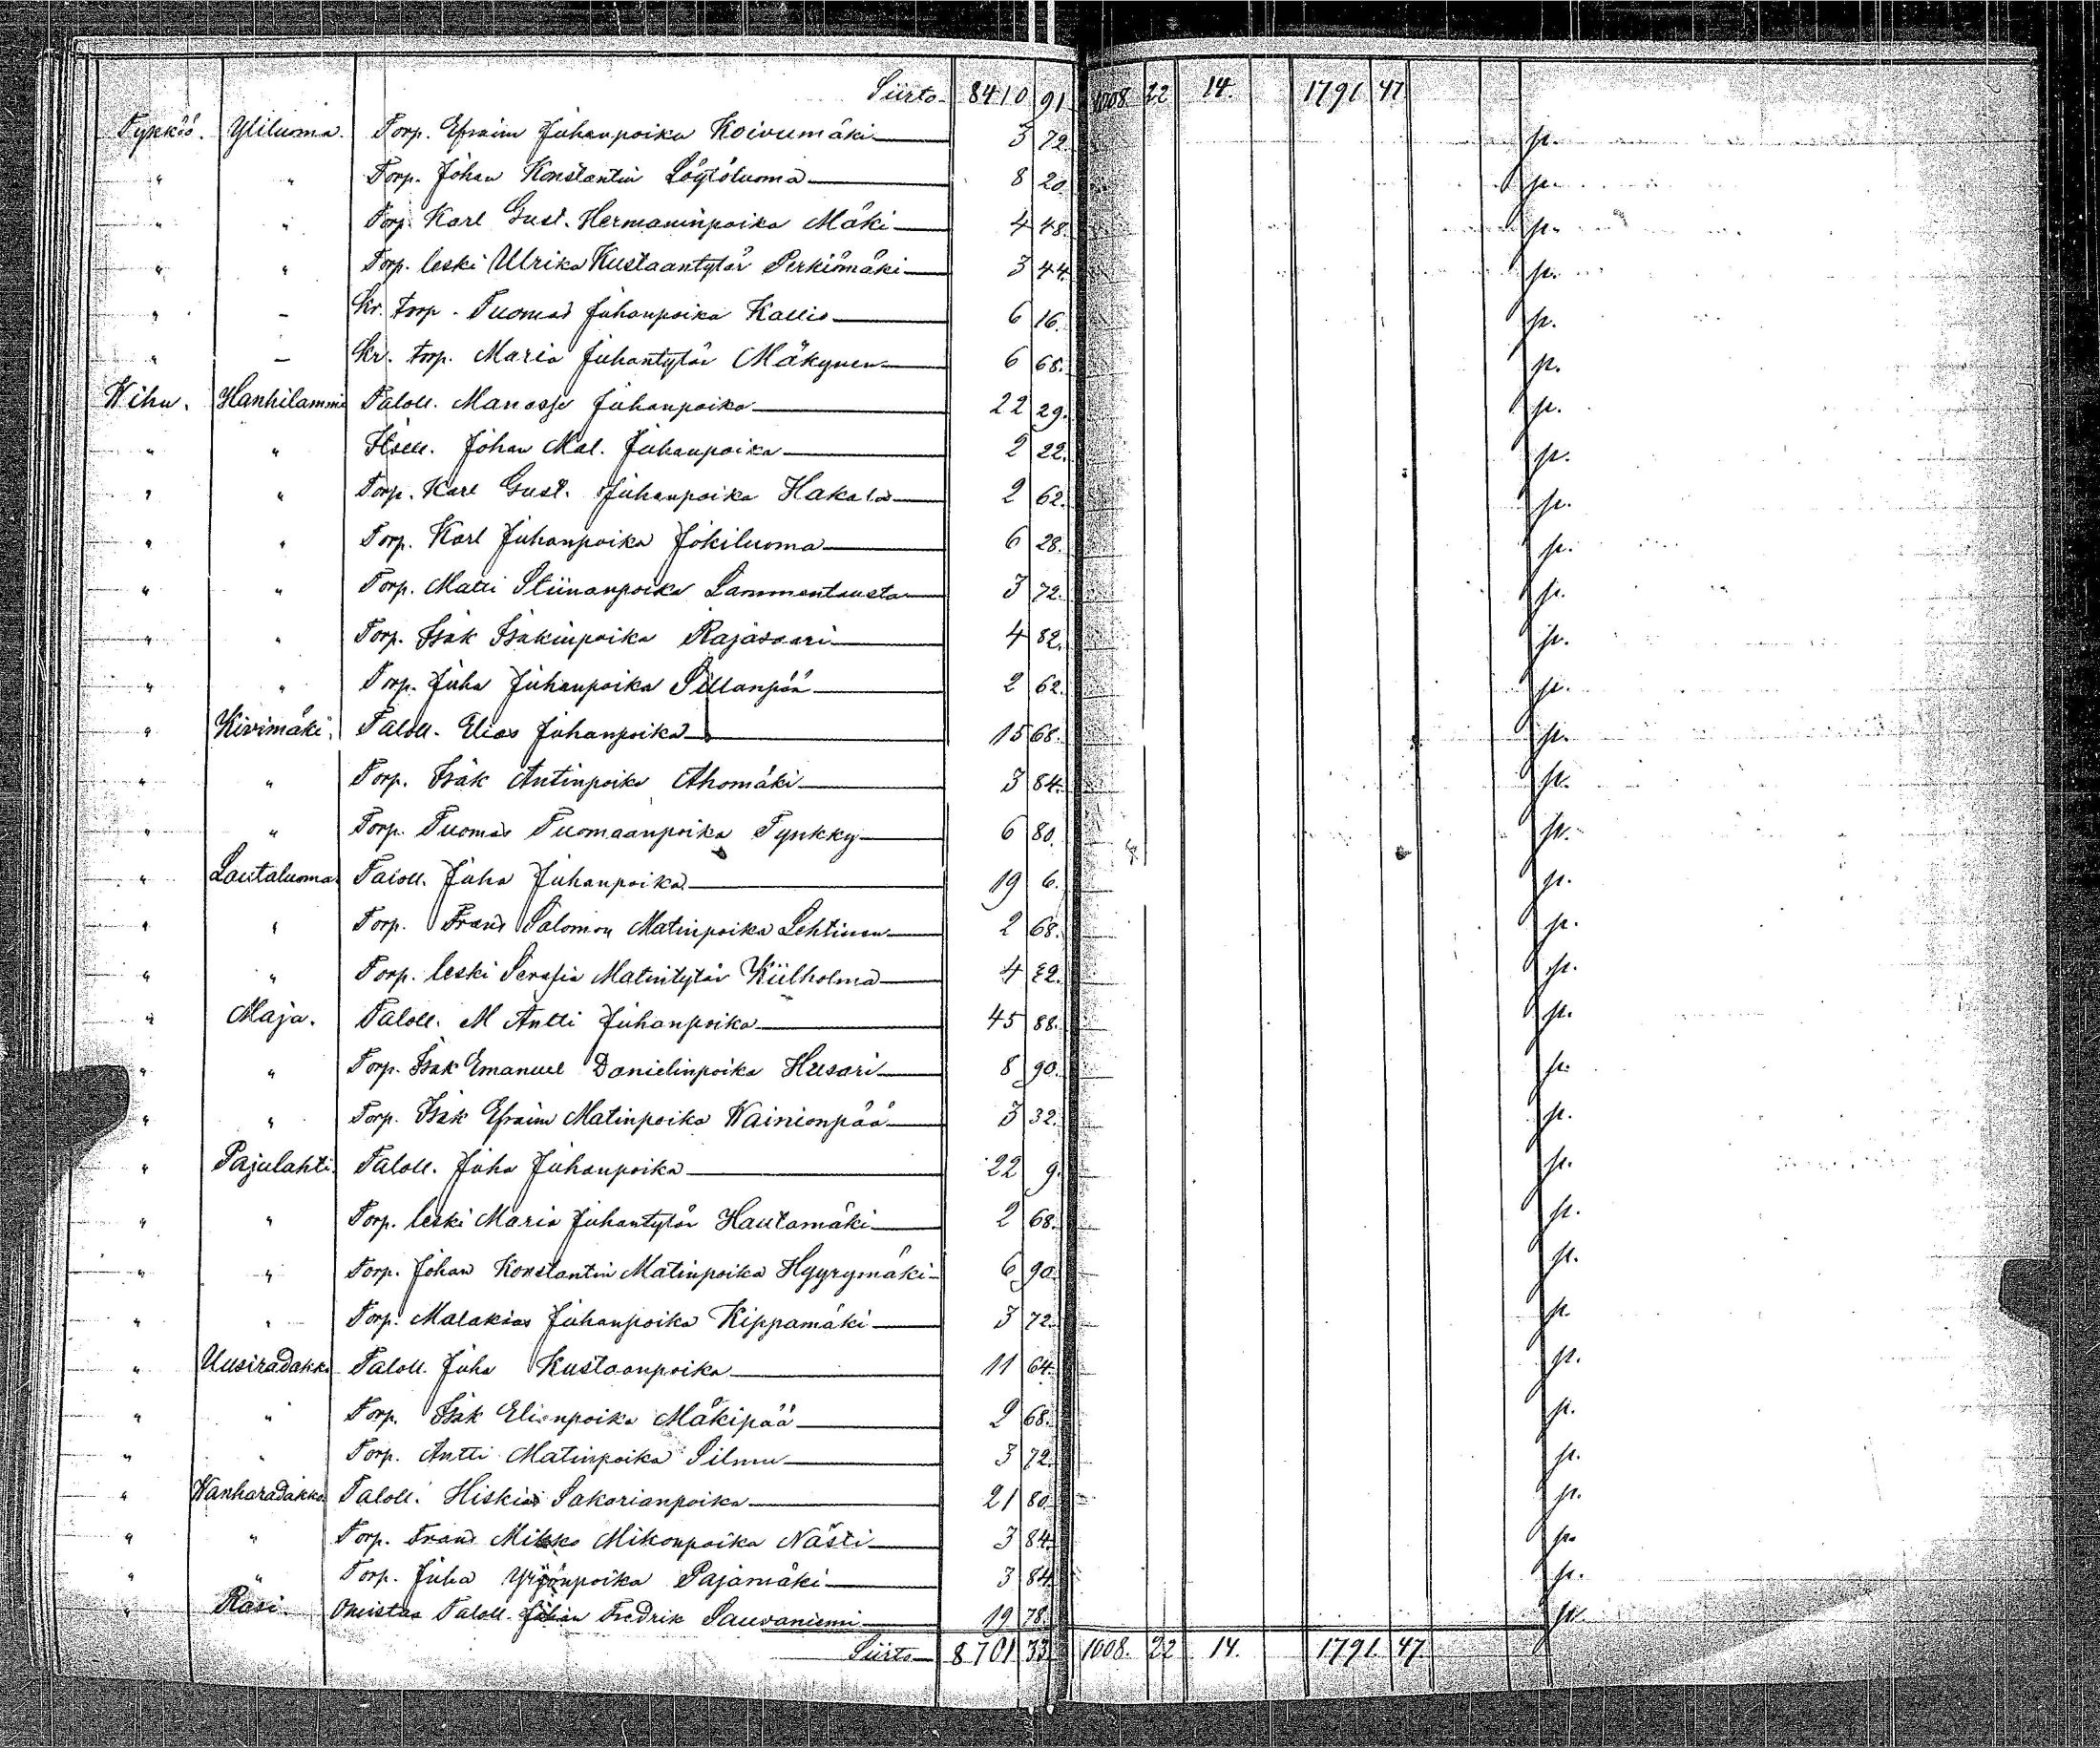 Siirto 8410 91 1008 22 14. 1791 47
Tykköö. Yliluoma. Torp. Efraim Juhanpoika Koivumäki 3 72. p.
" " Torp. Johan Konstantin Löytöluoma 8 20. p.
" " Torp. Karl Gust. Hermaninpoika Mäki 4 48. p.
" " Torp. leski Ulrika Kustaantytär Perkiömäki 3 44. p.
" – Kr. torp. Tuomas Juhanpoika Kallio 6 16. p.
" – Kr. torp. Maria Juhantytär Mäkynen 6 68. p.
Kihu. Hanhilammi Taloll. Manasse Juhanpoika 22 29. p.
" " Itsell. Johan Mal. Juhanpoika 2 22. p.
" " Torp. Karl Gust. Juhanpoika Hakala 2 62. p.
" " Torp. Karl Juhanpoika Jokiluoma 6 28. p.
" " Torp. Matti Stiinanpoika Lammentausta 3 72. p.
" " Torp. Isak Isakinpoika Rajasaari 4 82. p.
" " Torp. Juha Juhanpoika Sillanpää 2 62. p.
" Kivimäki. Taloll. Elias Juhanpoika 15 68. p.
" " Torp. Isak Antinpoika Ahomäki 3 84. p.
" " Torp. Tuomas Tuomaanpoika Tynkky 6 80. p.
" Lautaluoma Taloll. Juha Juhanpoika 19 6. p.
" " Torp. Frans Salomon Matinpoika Lehtinen 2 68. p.
" " Torp. leski Serafia Matintytär Kiilholma 4 22. p.
" Maja. Taloll. M Antti Juhanpoika 45 88. p.
" " Torp. Isak Emanuel Danielinpoika Husari 8 90. p.
" " Torp. Isak Efraim Matinpoika Wainionpää 3 32. p.
" Pajulahti. Taloll. Juha Juhanpoika 22 9. p.
" " Torp. leski Maria Juhantytär Hautamäki 2 68. p.
" " Torp. Johan Konstantin Matinpoika Hyyrymäki 6 90. p.
" " Torp. Malakias Juhanpoika Kippamäki 3 72. p.
" Uusiradakko Taloll. Juha Kustaanpoika 11 64. p.
" " Torp. Isak Elianpoika Mäkipää 2 68. p.
" " Torp. Antti Matinpoika Silmu 3 72. p.
" Wanharadakko Taloll. Hiskias Sakarianpoika 21 80. p.
" " Torp. Frans Mikko Mikonpoika Nästi 3 84. p.
" " Torp. Juha Yrjönpoika Pajamäki 3 84. p.
" Räsi. Omistaa Taloll. Johan Fredrik Sauvaniemi 19 78. p.
Siirto 8701 33 1008. 22 14. 1791. 47.